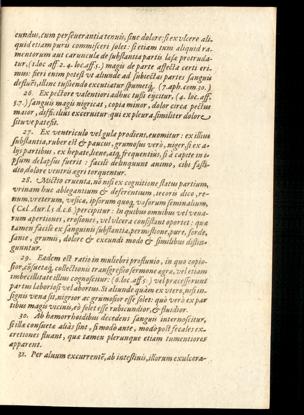 eundus, tum perseuerantia tenuis, sine dolore: si ex vlcere ali-
quid etiam puris commisceri solet: si etiam tum aliquid ra-
mentorum aut caruncula de substantia partis læsæ protruda-
tur. (1. loc. aff. 2. 4. loc. aff. 5.) magis de parte affecta certi eri-
mus: fieri enim potest vt aliunde ad subiectas partes sanguis
defluat, illinc tussiendo excutiatur spumeus. (7. aph. com. 30.)
26. Ex pectore valentiori adhuc tussi eijcitur, (4. loc. aff.
57.) sanguis magis nigricat, copia minor, dolor circa pectus
maior, difficilius excernitur: qui ex pleura similiter dolore
situ ve patefit.
27. Ex ventriculo vel gula prodiens, euomitur: ex illius
substantia, ruber est & paucus, grumosus verò, niger, si ex a-
lijs partibus, ex hepate, liene, atq, frequentius, si à capite in i-
psum delapsus fuerit: facilè delinquunt animo, cibi fasti-
dio, dolore ventris agri torquentur.
28. Mictio cruenta, nõ nisi ex cognitione status partium,
vrinam huc ablegantium & deferentium, iecoris dico, re-
num, vreterum, vesicæ, ipsorum quoq, vasorum seminalium,
(Cæl. Aur. l. 5. d. c. 6.) percipitur: In quibus omnibus vel vena-
rum apertiones, erosiones, vel vlcera consistunt oportet: quæ
tamen facilè ex sanguinis substantia, permistione, pure, sorde,
sanie, grumis, dolore & excundi modo & similibus distin-
guuntur.
29. Eadem est ratio in muliebri profluuio, in quo copio-
sior, cõsuetæq, collectionis transgressio fermone ægra, vel etiam
imbecillitate illius cognoscitur: (6. loc. aff. 5.) vel præcesserunt
partus laboriosi vel abortus. Si aliunde quàm ex vtero, nisi in-
signis vena sit, nigrior ac grumosior esse solet: quò verò ex par
tibus magis vicinis, eò solet esse rubicundior, & fluidior.
30. Ab hæmorrhoidibus decedens sanguis internoscitur,
si illa consueta aliàs sint, si modò ante, modò post fecales ex-
cretiones fluant, quæ tamen plerunque etiam tumentiores
apparent.
31. Per aluum excurrente, ab intestinis, illorum exulcera-